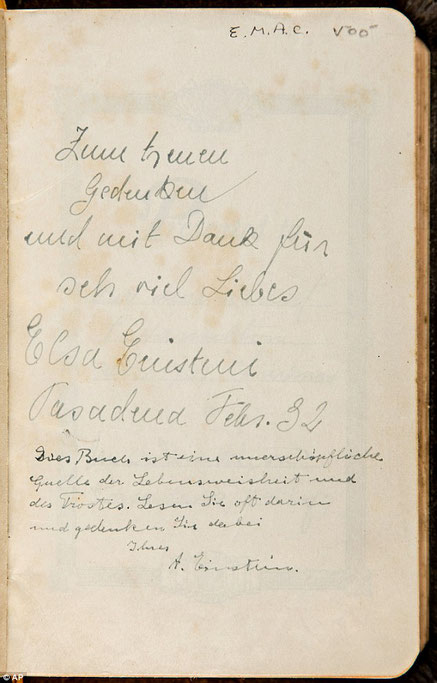 E. M. A. C. V00
Zum treuen
Gedenken
und mit Dank für
seh viel Liebes
Elsa Einstein
Pasadena Febr. 32
Dies Buch ist eine unerschöpfliche
Quelle der Lebensweisheit und
des Trostes. Lesen Sie oft darin
und gedenken Sie dabei
Ihres
A. Einstein.
© AP